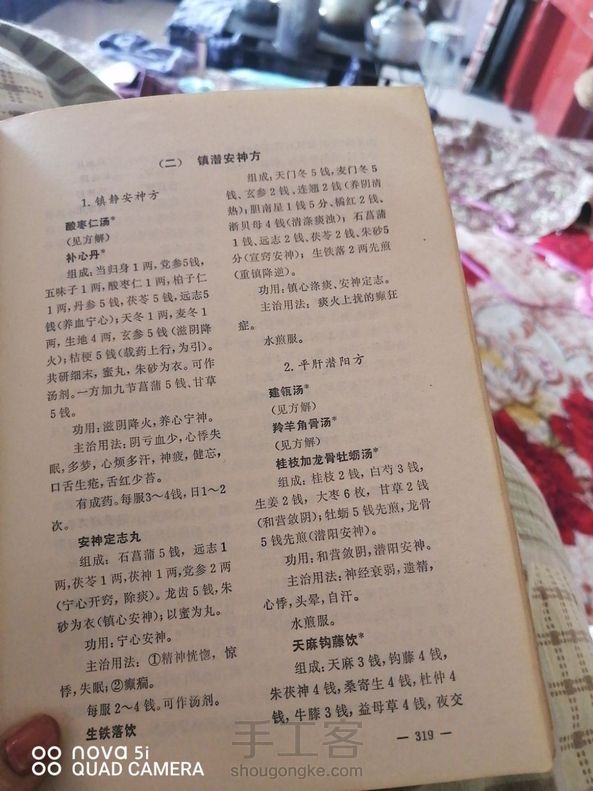 (二) 镇潜安神方
1. 镇静安神方
酸枣仁汤*
(见方解)
补心丹*
组成:当归身1两,党参5钱,
五味子1两,酸枣仁1两,柏子仁
1两,丹参5钱,茯苓5钱,远志5
钱(养血宁心);天冬1两,麦冬1
两,生地4两,玄参5钱(滋阴降
火);桔梗5钱(载药上行,为引)。
共研细末,蜜丸,朱砂为衣。可作
汤剂。一方加九节菖蒲5钱、甘草
5钱。
功用:滋阴降火,养心宁神。
主治用法:阴亏血少,心悸失
眠,多梦,心烦多汗,神疲,健忘,
口舌生疮,舌红少苔。
有成药。每服3～4钱,日1～2
次。
安神定志丸
组成:石菖蒲5钱,远志1
两,茯苓1两,茯神1两,党参2两
(宁心开窍,除痰)。龙齿5钱,朱
砂为衣(镇心安神);以蜜为丸。
功用:宁心安神。
主治用法:①精神恍惚,惊
悸,失眠;②癫痫。
每服2～4钱。可作汤剂。
生铁落饮
组成,天门冬5钱,麦门冬5
钱、玄参2钱、连翘2钱(养阴清
热);胆南星1钱5分、橘红2钱、
浙贝母4钱(清涤痰浊);石菖蒲
1钱、远志2钱、茯苓2钱、朱砂5
分(宣窍安神);生铁落2两先煎
(重镇降逆)。
功用:镇心涤痰、安神定志。
主治用法:痰火上扰的癫狂
症。
水煎服。
2. 平肝潜阳方
建瓴汤*
(见方解)
羚羊角骨汤*
(见方解)
桂枝加龙骨牡蛎汤*
组成:桂枝2钱,白芍3钱,
生姜2钱,大枣6枚,甘草2钱
(和营敛阴);牡蛎5钱先煎,龙骨
5钱先煎(潜阳安神)。
功用:和营敛阴,潜阳安神。
主治用法:神经衰弱,遗精,
心悸,头晕,自汗。
水煎服。
天麻钩藤饮*
组成:天麻3钱,钩藤4钱,
朱茯神4钱,桑寄生4钱,杜仲4
钱,牛膝3钱,益母草4钱,夜交
— 319 —
nova 5i
QUAD CAMERA
手工客
shougongke.com